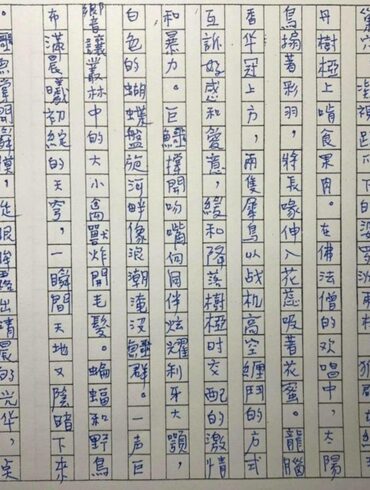 丹樹椏上啃食果肉。在佛法僧的欢唱中，太陽
鳥搧著彩羽，將長喙伸入花蕊吸著花蜜。龍腦
香华冠上方，兩隻犀鳥以战机高空纏鬥的方式
互訴好感和愛意，緩和降落樹椏时交配的激情
和暴力。巨鱷撐開吻嘴向同伴炫耀利牙大顎，
白色的蝴蝶盤旋河畔像浪潮淹没鱷群。一声巨
響讓叢林中的大小禽獸炸開毛髮。蝙蝠和野鳥
布滿晨曦初綻的天穹，一瞬間天地又陰暗下來
。